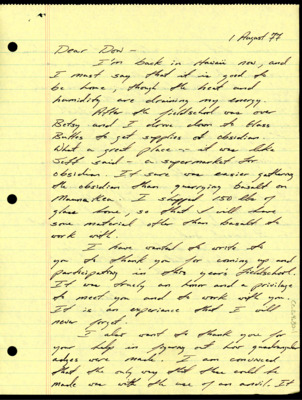 1 August 77
Dear Don -
I'm back in Hawaii now, and
I must say that it is good to
be home, though the heat and
humidity are draining my energy.
After the fieldschool was over
Betsy and I drove down to Glass
Buttes to get supplies of obsidian.
What a great place - it was like
Jeff said - a supermarket for
obsidian. It sure was easier gathering
the obsidian than quarrying basalt on
Mauna Kea. I shipped 150 lbs of
glass home, so that I will have
some material other than basalt to
work with.
I have wanted to write to
you to thank you for coming up and
participating in this year's fieldschool.
It was truly an honor and a privilege
to meet you and to work with you.
It is an experience that I will
never forget.
I also want to thank you for
your help in figuring out how quadrangular
adzes were made. I am convinced
that the only way that they could be
made was with the use of an anvil. It